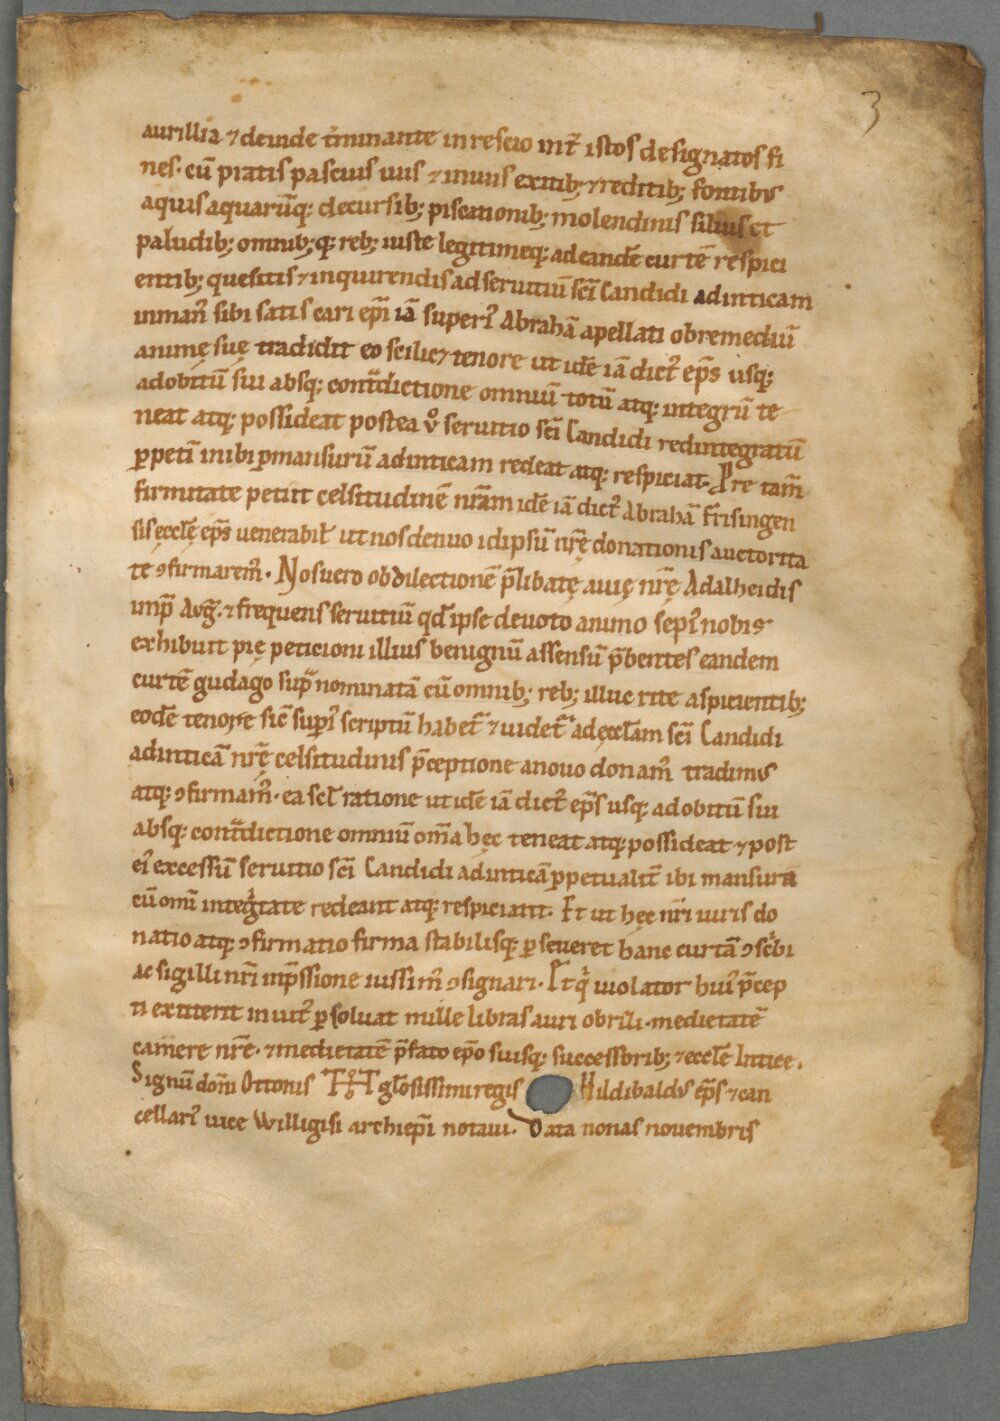 3
aurillia ⁊ deinde t̄minante in rescio int̄ istos designatos fi
nes· cū pratis pascuis uiis ⁊ inuiis exitib; ⁊ reditib; fontibus
aquis aquarūq; decursib; piscationib; molendinis siluis et
paludib; omnib;q; reb; iuste legitimeq; ad eandē curtē respici
entib; quesitis ⁊ inquirendis ad seruitiū sc̄i Candidi ad inticam
in man᷒ sibi satis cari ep̄i iā superi᷒ Abrahā apellati ob remediū
animę suę tradidit eo scilic⁊ tenore ut idē iā dict᷒ ep̄s usq;
ad obitū sui absq; cont̄dictione omniū totū atq; integrū te
neat atq; possideat postea v̊ seruitio sc̄i Candidi redintegratū
ꝑpeti᷒ inibi ꝑmansurū ad inticam redeat atq; respiciat· Pre tam̄
firmitate petiit celsitudinē nr̄am idē iā dict᷒ Abrahā Frisingen
sis ęcclę̄ ep̄s venerabil̄ ut nos denuo id ipsū nr̄ę donationis auctorita
te ꝯfirmarem᷒· Nos uero ob dilectionē p̄libatę auię nr̄ę Adalheidis
imp̄ Avḡ· ⁊ frequens seruitiū qd̄ ipse deuoto animo sepi᷒ nobis
exhibuit pię peticioni illius benignū assensū p̄bentes eandem
curtē gudago sup̄nominatā cū omnib; reb; illuc rite aspicientib;
eodē tenore sic̄ superi᷒ scriptū habet̄ ⁊ uidet̄ ad ęccl̄am sc̄i Candidi
ad inticā nr̄ę celsitudinis p̄ceptione a nouo donam᷒ tradimus
atq; ꝯfirmam᷒· ea scl̄ ratione ut idē iā dict᷒ ep̄s usq; ad obitū sui
absq; cont̄dictione omniū om̄ia hęc teneat atq; possideat ⁊ post
ei᷒ excessū seruitio sc̄i Candidi ad inticā ꝑpetualit̄ ibi mansura
cū omi̅ inteḡtate redeant atq; respiciant· Et ut hęc nr̄i iuris do
natio atq; ꝯfirmatio firma stabilisq; ꝑseueret hanc curtā ꝯscͥbi
ac sigilli nr̄i imp̄ssione iussim᷒ ꝯsignari· Et qͥ uiolator hui᷒ p̄cep
ti extiterit inuit᷒ ꝑsoluat mille libras auri obrili· medietatē
camere nr̄e· ⁊ medietatē p̄fato ep̄o suisq; successorib; ⁊ eccl̄e Intice.
Signū dom̄i Ottonis gl̄osissimi regis Hildibaldus ep̄s ⁊ can
cellari᷒ uice Willigisi archiep̄i notaui· Data nonas nouembris